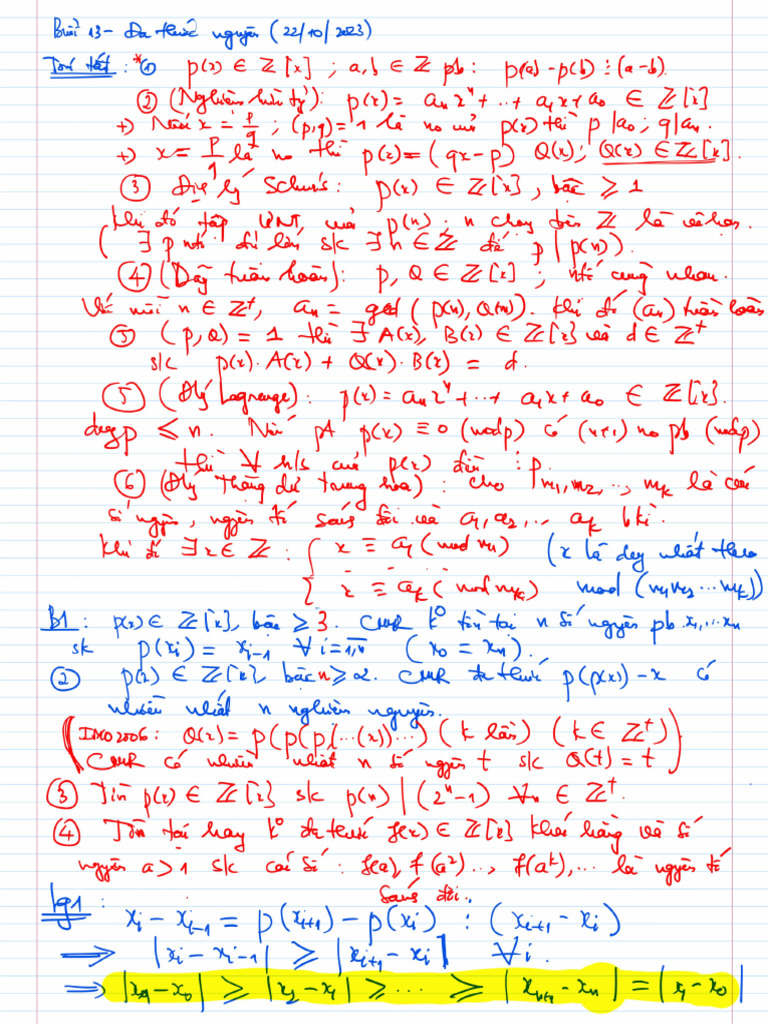 Buổi 13 - Đa thức nguyên (22/10/2023)
Tóm tắt : * ① p(x) ∈ Z[x] ; a, b ∈ Z pb : p(a) - p(b) ⋮ (a-b).
② (Nghiệm hữu tỷ): p(x) = aₙxⁿ + ... + a₁x + a₀ ∈ Z[x]
+) Nếu x = p/q ; (p,q) = 1 là no của p(x) thì p | a₀ ; q | aₙ.
+) x = p/q là no thì p(x) = (qx-p) Q(x); Q(x) ∈ Z[x].
③ Định lý Schur : p(x) ∈ Z[x], bậc ⩾ 1
Khi đó tập ƯNT của p(n) ; n chạy trên Z là vô hạn.
( ∃ p nt đủ lớn s/c ∃ n ∈ Z để p | p(n) ).
④ (Dãy tuần hoàn): P, Q ∈ Z[x] ; nt cùng nhau.
Với mỗi n ∈ Z⁺, aₙ = gcd ( p(n), Q(n) ). Khi đó (aₙ) tuần hoàn
⑤ (P, Q) = 1 thì ∃ A(x), B(x) ∈ Z[x] và d ∈ Z⁺
s/c p(x). A(x) + Q(x). B(x) = d.
⑤ (Đlý Lagrange) : p(x) = aₙxⁿ + ... + a₁x + a₀ ∈ Z[x].
deg p ⩽ n. Nếu pt p(x) ≡ 0 (mod p) có (n+1) no pb (mod p)
thì ∀ h/s của p(x) đều ⋮ p.
⑥ (Đlý Thặng dư trung hoa) : cho m₁, m₂, ..., mₖ là các
số nguyên, nguyên tố sánh đôi và a₁, a₂, ... aₖ bkì.
Khi đó ∃ x ∈ Z : { x ≡ a₁ (mod m₁) (x là duy nhất theo
x ≡ aₖ (mod mₖ) mod (m₁m₂...mₖ))
B1 : p(x) ∈ Z[x], bậc ⩾ 3. CMR k⁰ tồn tại n số nguyên pb x₁, ... xₙ
sk p(xᵢ) = xᵢ₋₁ ∀ i = 1,n (x₀ = xₙ).
② p(x) ∈ Z[x], bậc n ⩾ 2. CMR đa thức p(p(x)) - x có
nhiều nhất n nghiệm nguyên.
( IMO 2006 : Q(x) = p(p(p(...(x))...) (k lần) (k ∈ Z⁺)
CMR có nhiều nhất n số nguyên t s/c Q(t) = t )
③ Tìm p(x) ∈ Z[x] s/c p(n) | (2ⁿ-1) ∀n ∈ Z⁺.
④ Tồn tại hay k⁰ đa thức f(x) ∈ Z[x] khác hằng và số
nguyên a > 1 s/c các số : f(a), f(a²) ..., f(aᵏ), ... là nguyên tố
sánh đôi.
Lg1 :
xᵢ - xᵢ₋₁ = p(xᵢ₊₁) - p(xᵢ) ⋮ (xᵢ₊₁ - xᵢ)
⟹ |xᵢ - xᵢ₋₁| ⩾ |xᵢ₊₁ - xᵢ| ∀ i.
⟹ |x₁ - x₀| ⩾ |x₂ - x₁| ⩾ ... ⩾ |xₙ₊₁ - xₙ| = |x₁ - x₀|